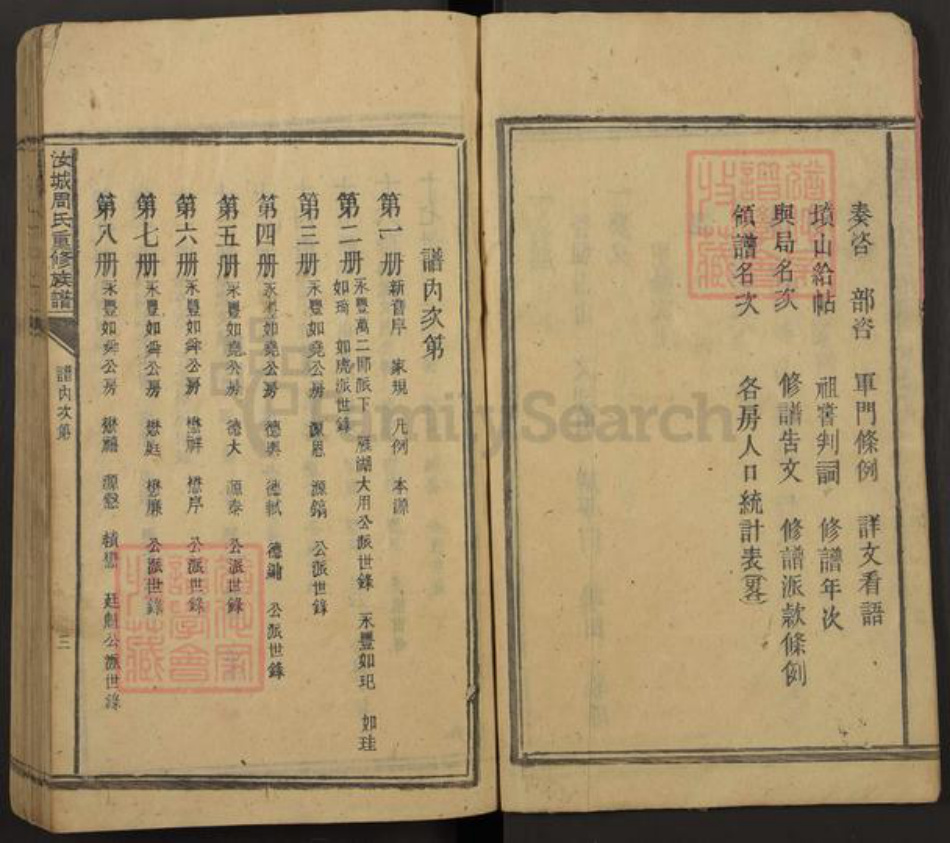 奏咨 部咨 軍門條例 詳文看語
墳山給帖 祖嘗判詞 修譜年次
與局名次 修譜告文 修譜派款條例
領譜名次 各房人口統計表
譜內次第
第一册 新音序 家規 凡例 本源
第二册 永豐萬二郎派下 雁湖大用公派世錄 永豐如玘 如珪
如琦 如虎派世錄
第三册 永豐如堯公房 源恩 源鎬 公派世錄
第四册 永豐如堯公房 德輿 德軾 德鏞 公派世錄
第五册 永豐如堯公房 德大 源泰 公派世錄
第六册 永豐如舜公房 懋序 公派世錄
第七册 永豐如舜公房 懋庭 懋廉 公派世錄
第八册 永豐如舜公房 源 廷魁公派世錄
汝城周氏重修族譜
譜內次第
三
FamilySearch